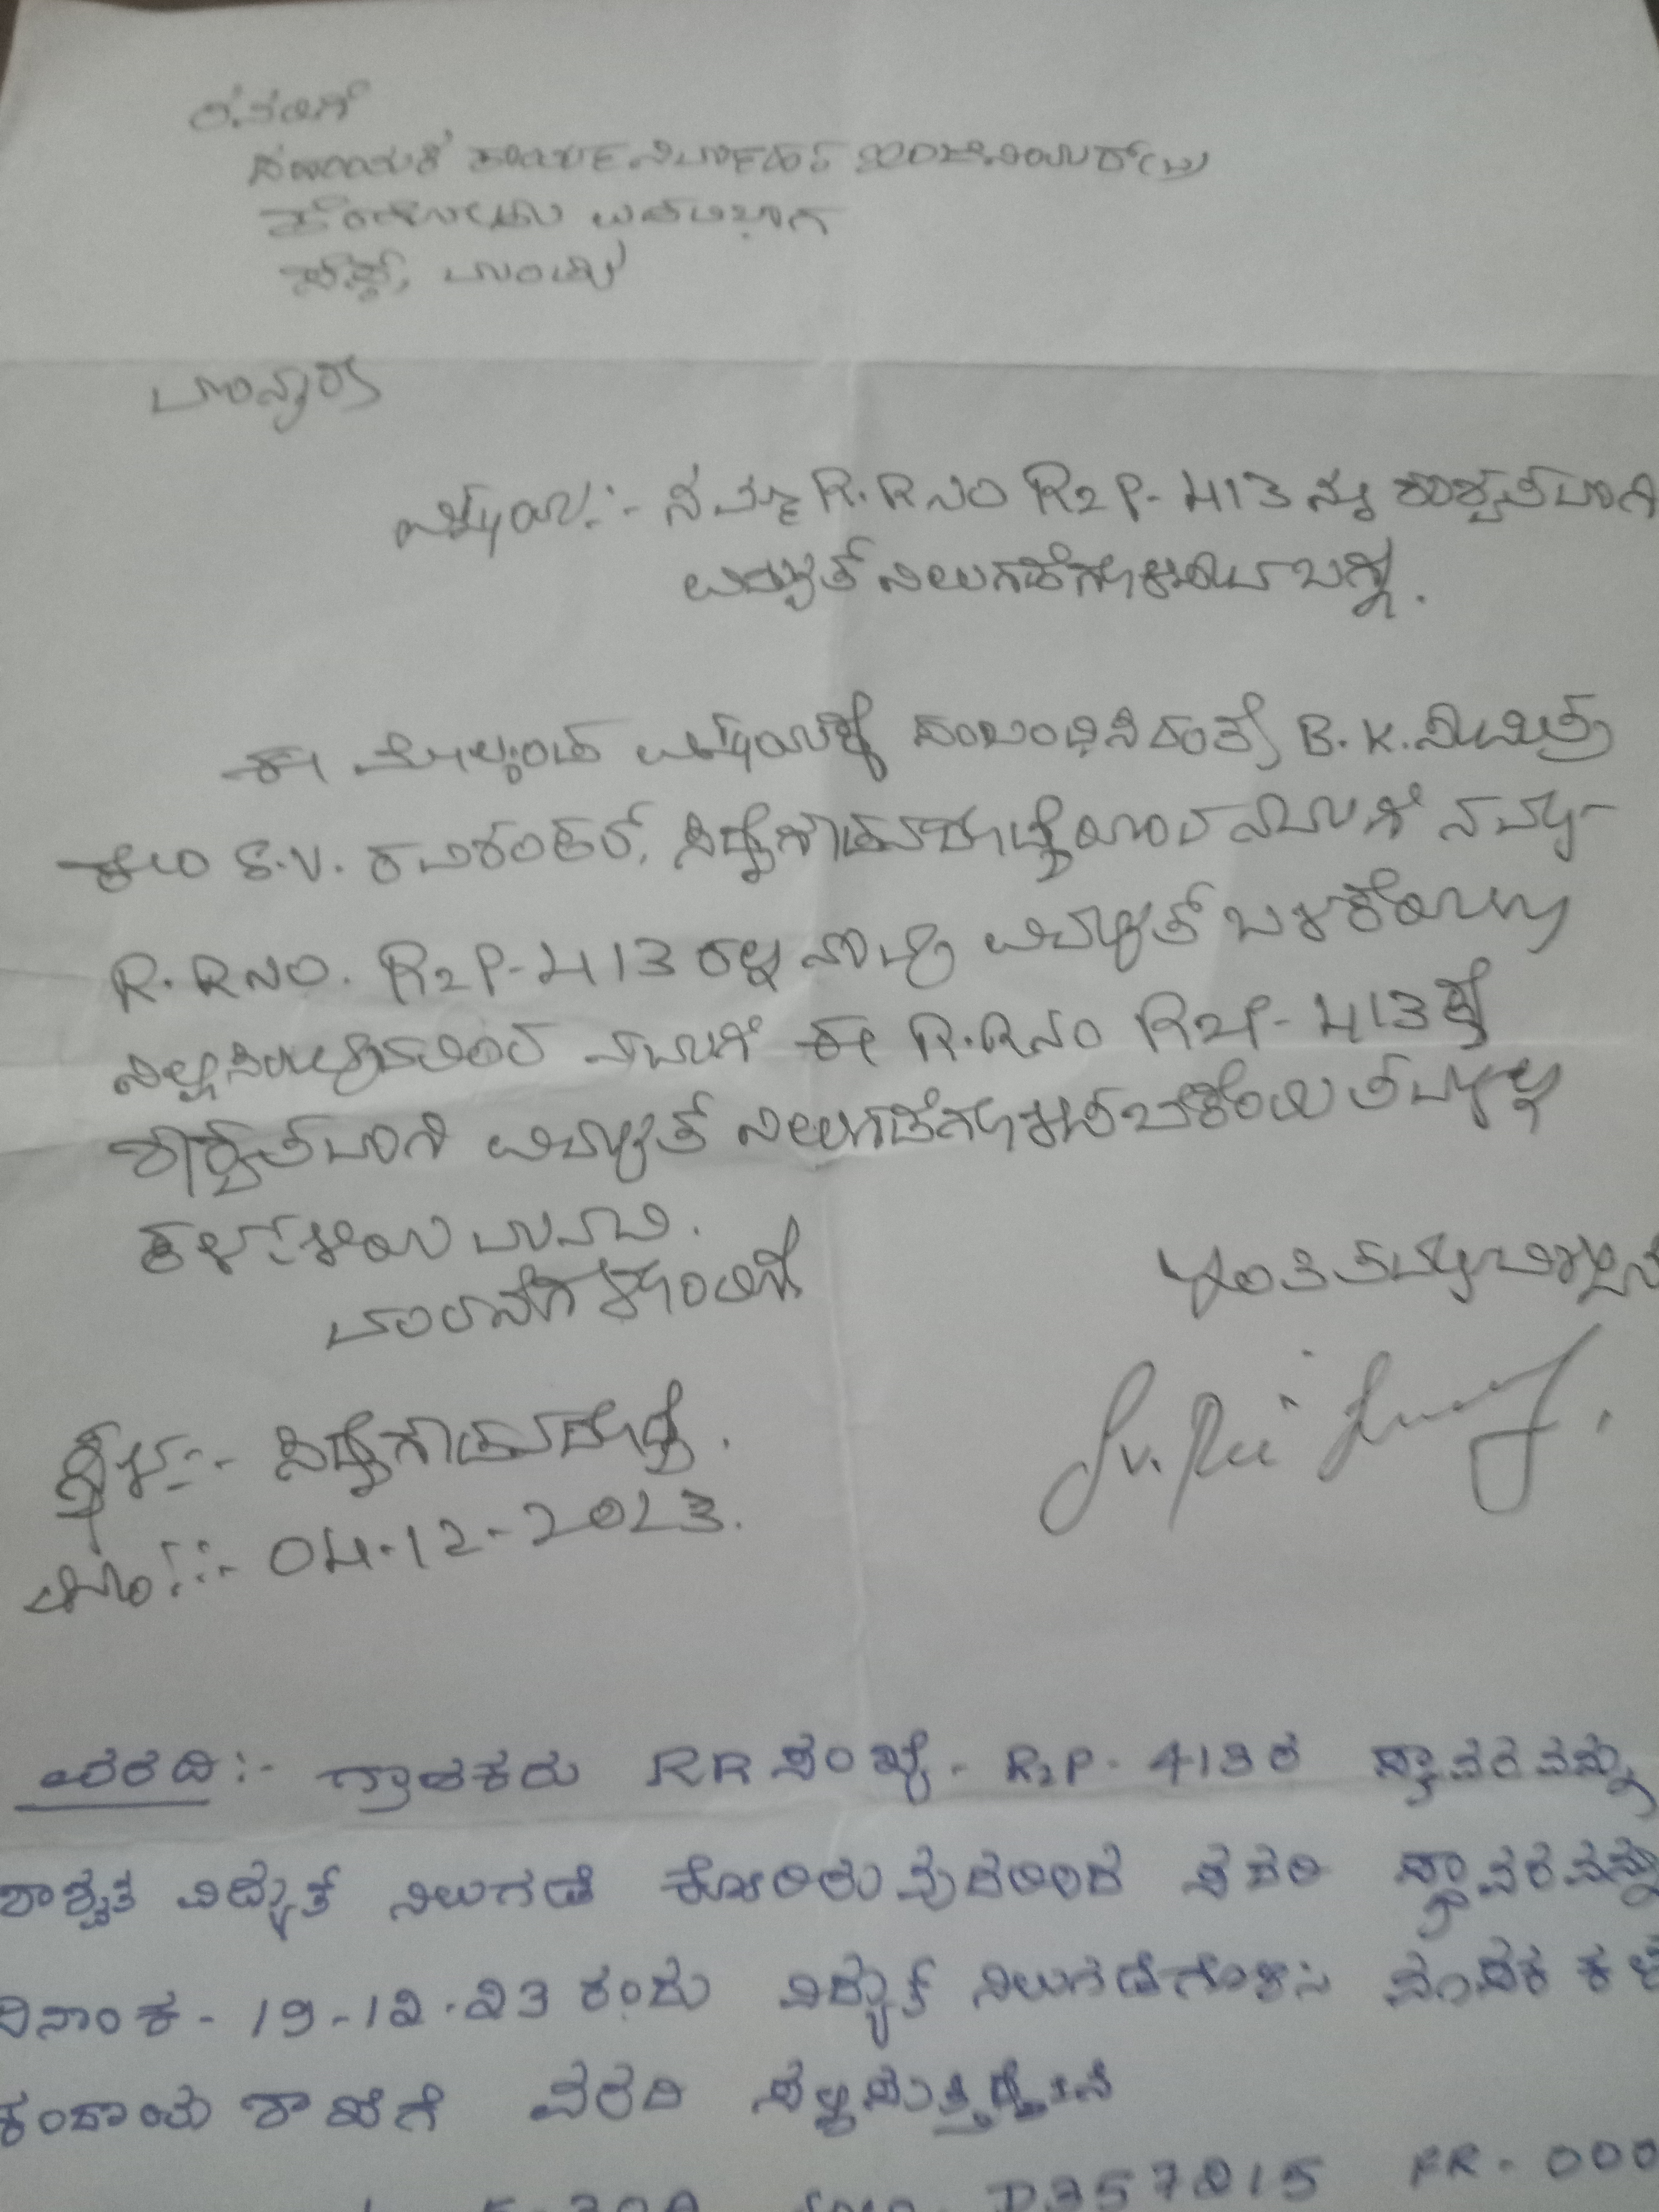 ರವರಿಗೆ
ಸಹಾಯಕ ಕಾರ್ಯನಿರ್ವಾಹಕ ಇಂಜಿನಿಯರ್(ವಿ)
ಉಪವಿಭಾಗ
ಮಂಡ್ಯ
ಮಾನ್ಯರೆ
ವಿಷಯ:- ನಮ್ಮ R.R ನಂ R2P-413 ನ್ನು ಶಾಶ್ವತವಾಗಿ
ವಿದ್ಯುತ್ ನಿಲುಗಡೆಗೊಳಿಸುವ ಬಗ್ಗೆ.
ಈ ಮೇಲ್ಕಂಡ ವಿಷಯಕ್ಕೆ ಸಂಬಂಧಿಸಿದಂತೆ B.K.
S.V. ರವಿಶಂಕರ್, ಆದ ನಮಗೆ ನಮ್ಮ
R.R ನಂ. R2P-413 ರಲ್ಲಿ ನಾವು ವಿದ್ಯುತ್ ಬಳಕೆಯನ್ನು
ನಿಲ್ಲಿಸಿರುವುದರಿಂದ ನಮಗೆ ಈ R.R ನಂ R2P-413 ಕ್ಕೆ
ಶಾಶ್ವತವಾಗಿ ವಿದ್ಯುತ್ ನಿಲುಗಡೆಗೊಳಿಸಬೇಕೆಂದು ತಮ್ಮಲ್ಲಿ
ಕಳಕಳಿಯ ಮನವಿ.
ವಂದನೆಗಳೊಂದಿಗೆ
ಇಂತಿ ತಮ್ಮ ವಿಶ್ವಾಸಿ
ಸ್ಥಳ:-
ದಿನಾಂಕ:- 04-12-2023.
ವರದಿ:- ಗ್ರಾಹಕರು RR ಸಂಖ್ಯೆ- R2P-413 ರ ಸ್ಥಾವರವನ್ನು
ಶಾಶ್ವತ ವಿದ್ಯುತ್ ನಿಲುಗಡೆ ಕೋರಿರುವುದರಿಂದ ಸದರಿ ಸ್ಥಾವರವನ್ನು
ದಿನಾಂಕ- 19-12-23 ರಂದು ವಿದ್ಯುತ್ ನಿಲುಗಡೆಗೊಳಿಸಿ ಮಾಪಕ
ಕಂದಾಯ ಶಾಖೆಗೆ ವರದಿ ಸಲ್ಲಿಸುತ್ತಿದ್ದೇನೆ
D357215 FR-000